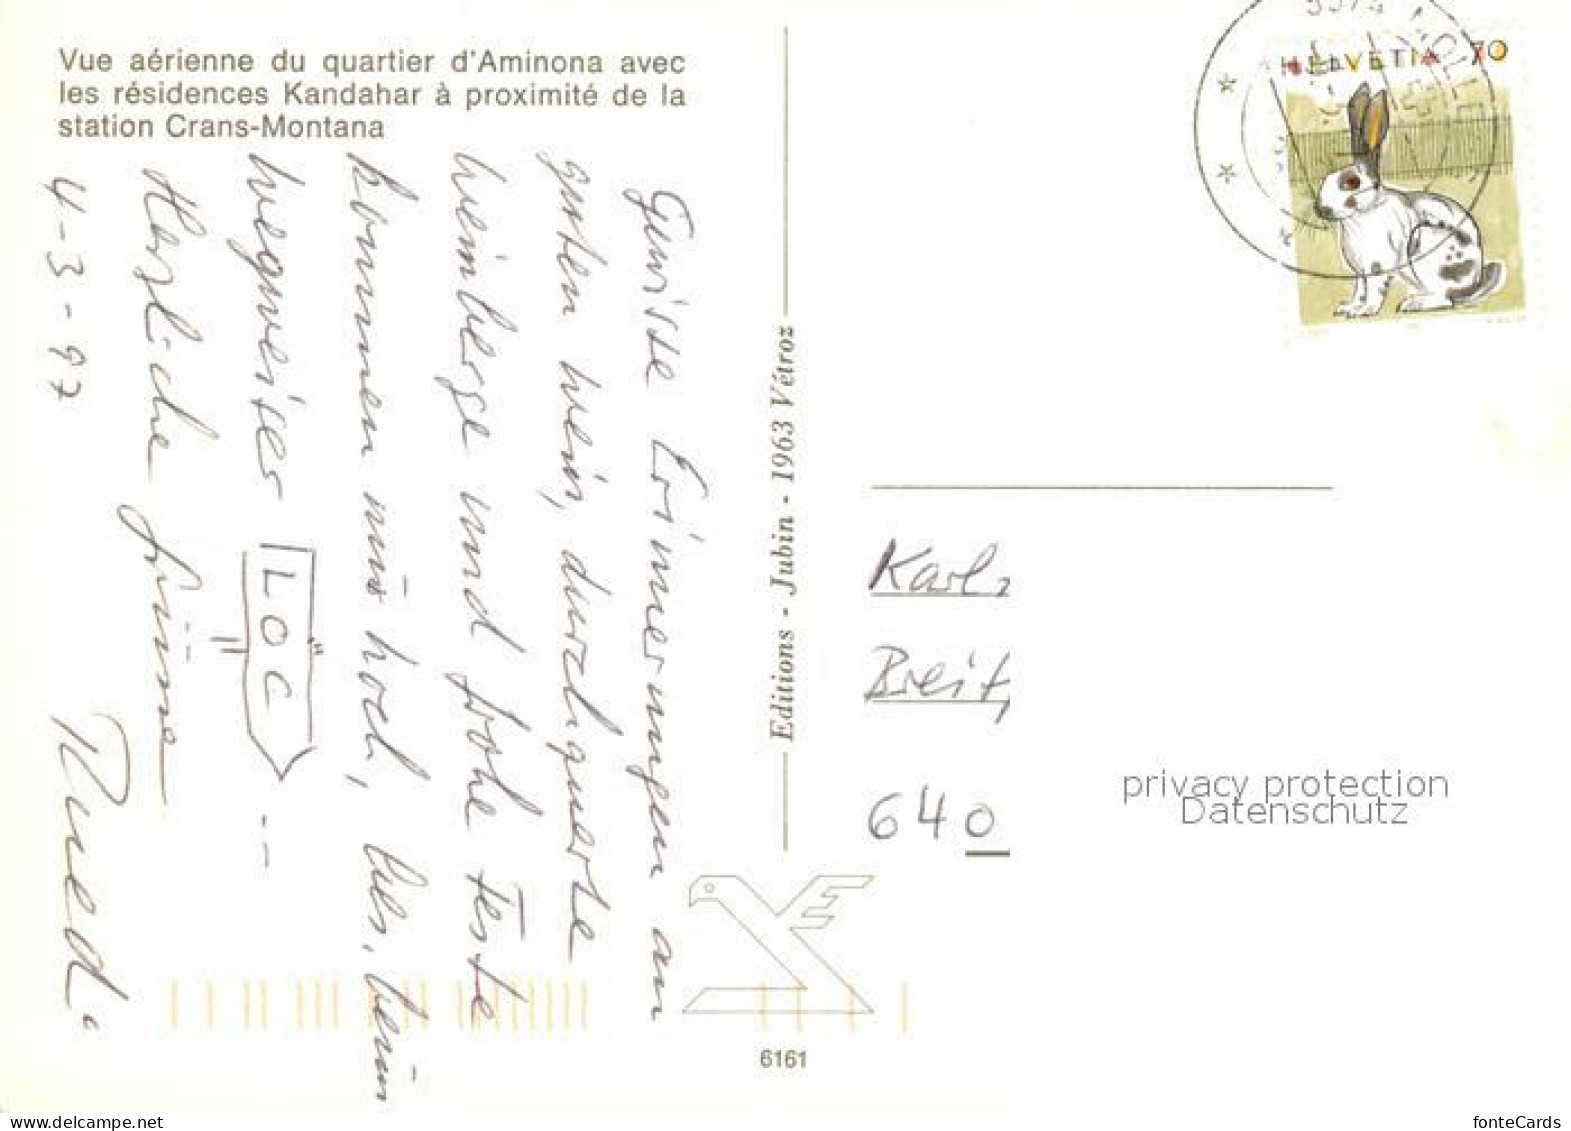 Vue aérienne du quartier d'Aminona avec
les résidences Kandahar à proximité de la
station Crans-Montana
Gewisse Erinnerungen an
guten Wein, durchquerte
Weinberge und frohe Feste
kommen mir hoch, bes. beim
Wegweiser LOC --
Herzliche Grüsse
4-3-97
Ruedi
Editions - Jubin - 1963 Vétroz
6161
HELVETIA 70
Karl
Breit
640
privacy protection
Datenschutz
delcampe.net
fonteCards